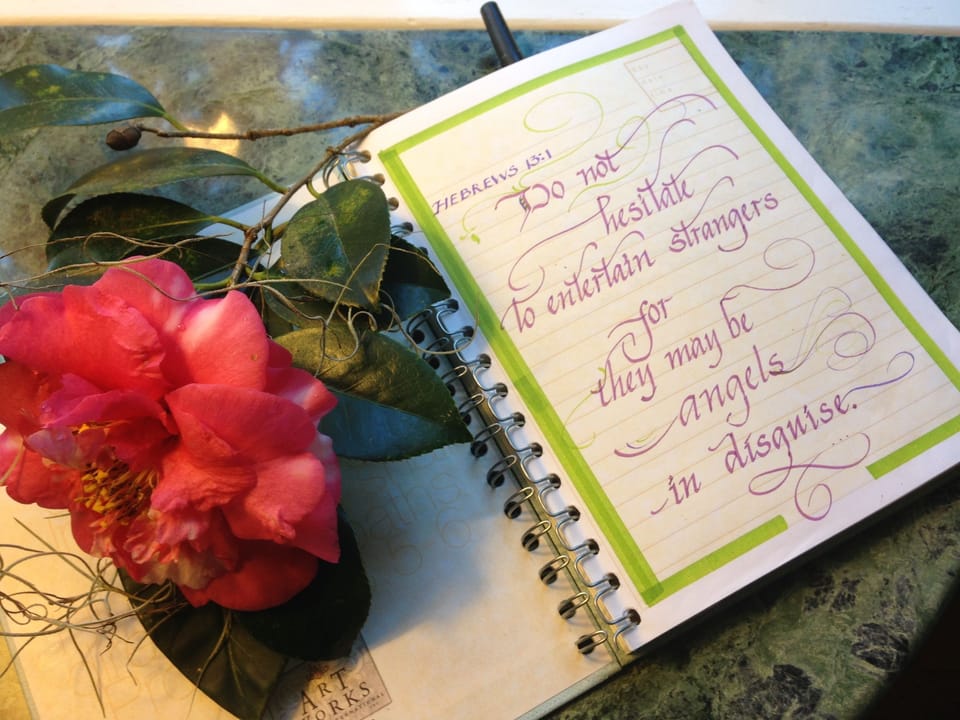 HEBREWS 13:1
Do not
hesitate
to entertain strangers
for
they may be
angels
in disguise.
ART
WORKS